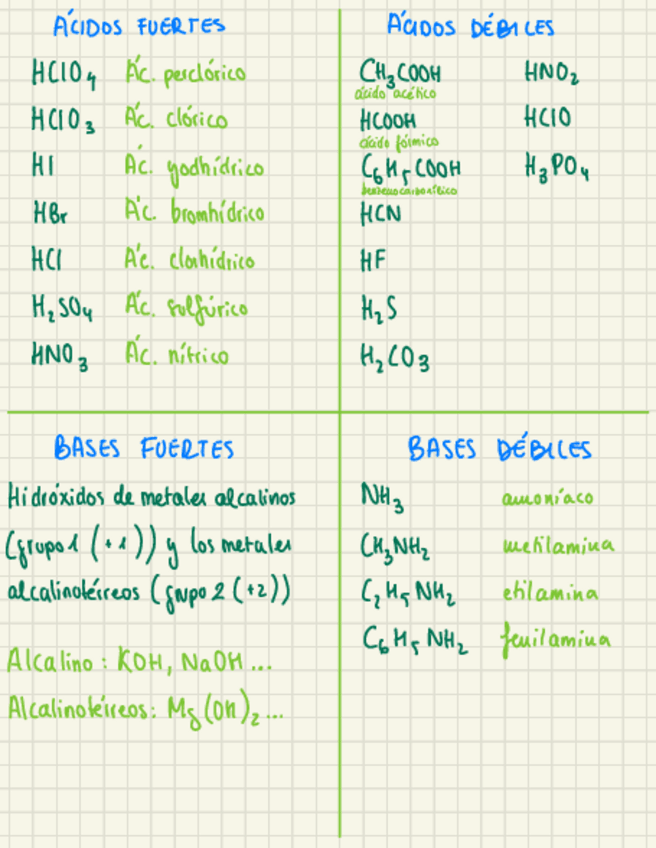 ÁCIDOS FUERTES
HClO4 Ác. perclórico
HClO3 Ác. clórico
HI Ác. yodhídrico
HBr Ác. bromhídrico
HCl Ác. clorhídrico
H2SO4 Ác. sulfúrico
HNO3 Ác. nítrico
ÁCIDOS DÉBILES
CH3COOH HNO2
ácido acético
HCOOH HClO
ácido fórmico
C6H5COOH H3PO4
bencenocarboxílico
HCN
HF
H2S
H2CO3
BASES FUERTES
Hidróxidos de metales alcalinos
(grupo 1 (+1)) y los metales
alcalinotérreos (grupo 2 (+2))
Alcalino: KOH, NaOH...
Alcalinotérreos: Mg(OH)2...
BASES DÉBILES
NH3 amoníaco
CH3NH2 metilamina
C2H5NH2 etilamina
C6H5NH2 fenilamina